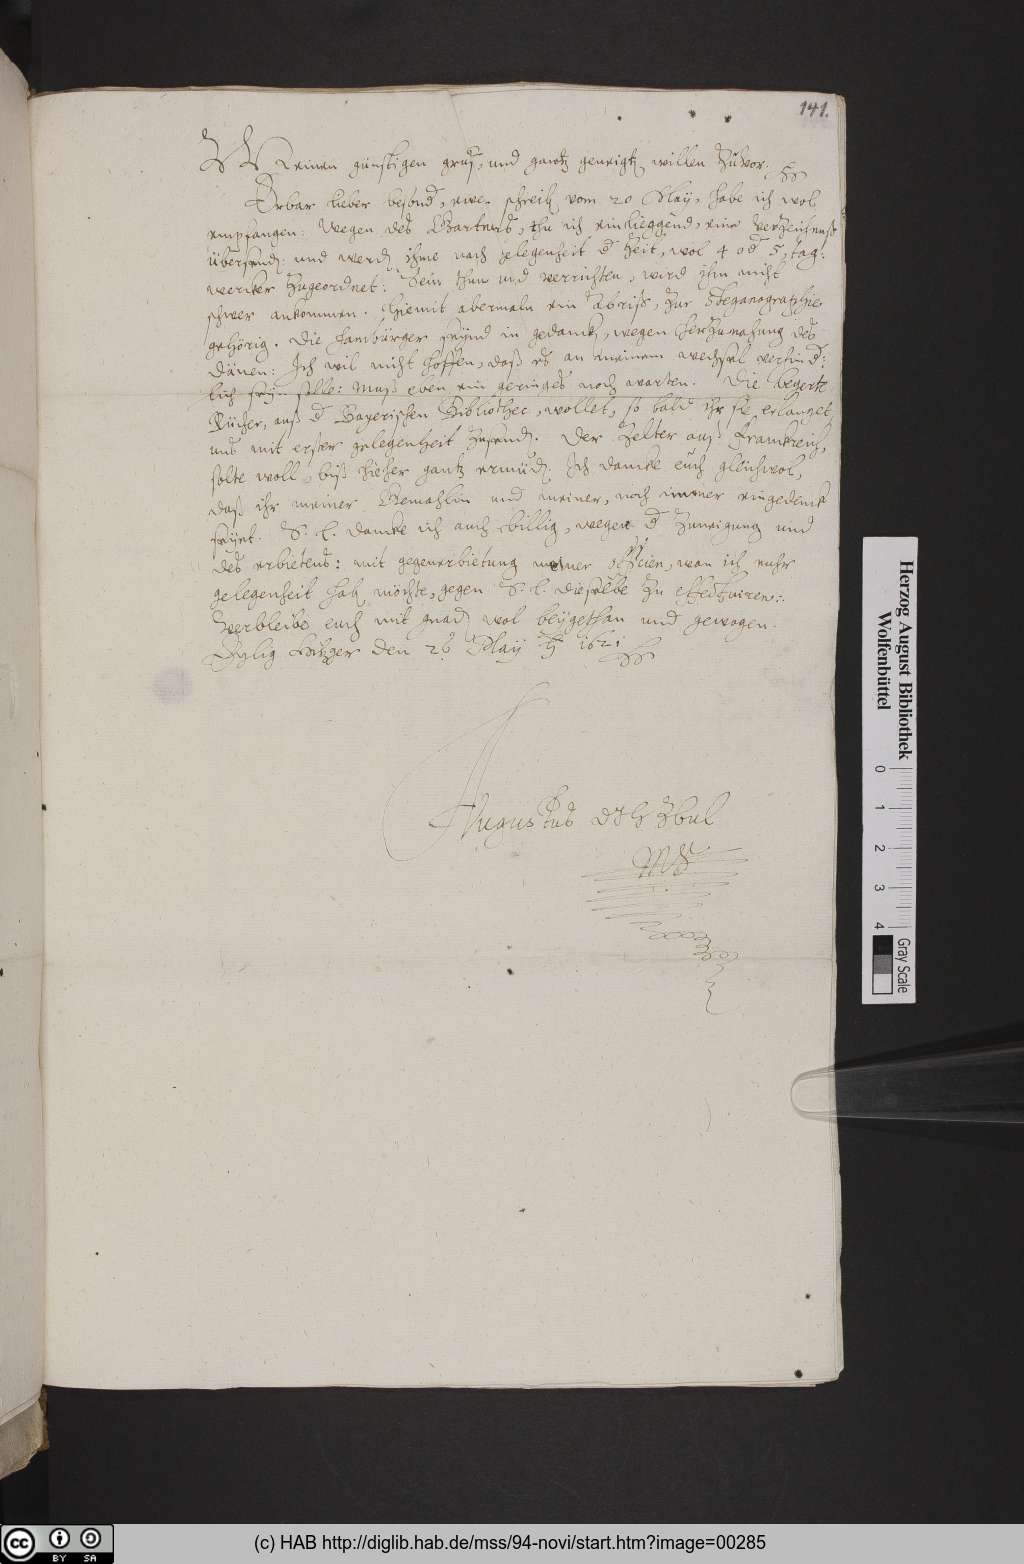 141.
Meinen günstigen gruß, und gantz geneigt willen zuvor.
Erbar lieber besond, ewer schreib vom 20 May, habe ich wol
empfangen: Wegen des Gartners, thu ich einliggend, eine verzeichnuß
übersend: und werd ihme nach gelegenheit d zeit, wol 4 od 5, tag:
wercker zugeordnet: Sein thun und verrichten, wird ihm nicht
schwer ankommen. Hiemit abermaln ein abriß, zur Steganographie
gehörig. Die Hamburger seynd in gedanck, wegen herzunahung des
Dänen: Ich wil nicht hoffen, daß es an meinem wechsel verhind:
lich seyn solle: muß even ein geringes noch warten. Die begerte
Bücher, auß d Bayerischen Bibliothec, wollet, so bald ihr sie erlanget,
uns mit erster gelegenheit zusend. Der Zelter auß Franckreich,
solte woll biß hieher gantz ermüd. Ich dancke euch gleichwol,
daß ihr meiner Gemahlin und meiner, noch immer eingedenck
seynt. S. L. dancke ich auch billig, wegen d zuneigung und
des erbietens: mit gegenerbietung meiner officien, wan ich mehr
gelegenheit hab möchte, gegen S. L. dieselbe zu effectuiren:
Verbleibe euch mit gnad wol beygethan und gewogen.
Eylig Hitzger den 26 May 1621
Augustus
Herzog August Bibliothek
Wolfenbüttel
0 1 2 3 4
Gray Scale
cc
BY SA
(c) HAB http://diglib.hab.de/mss/94-novi/start.htm?image=00285